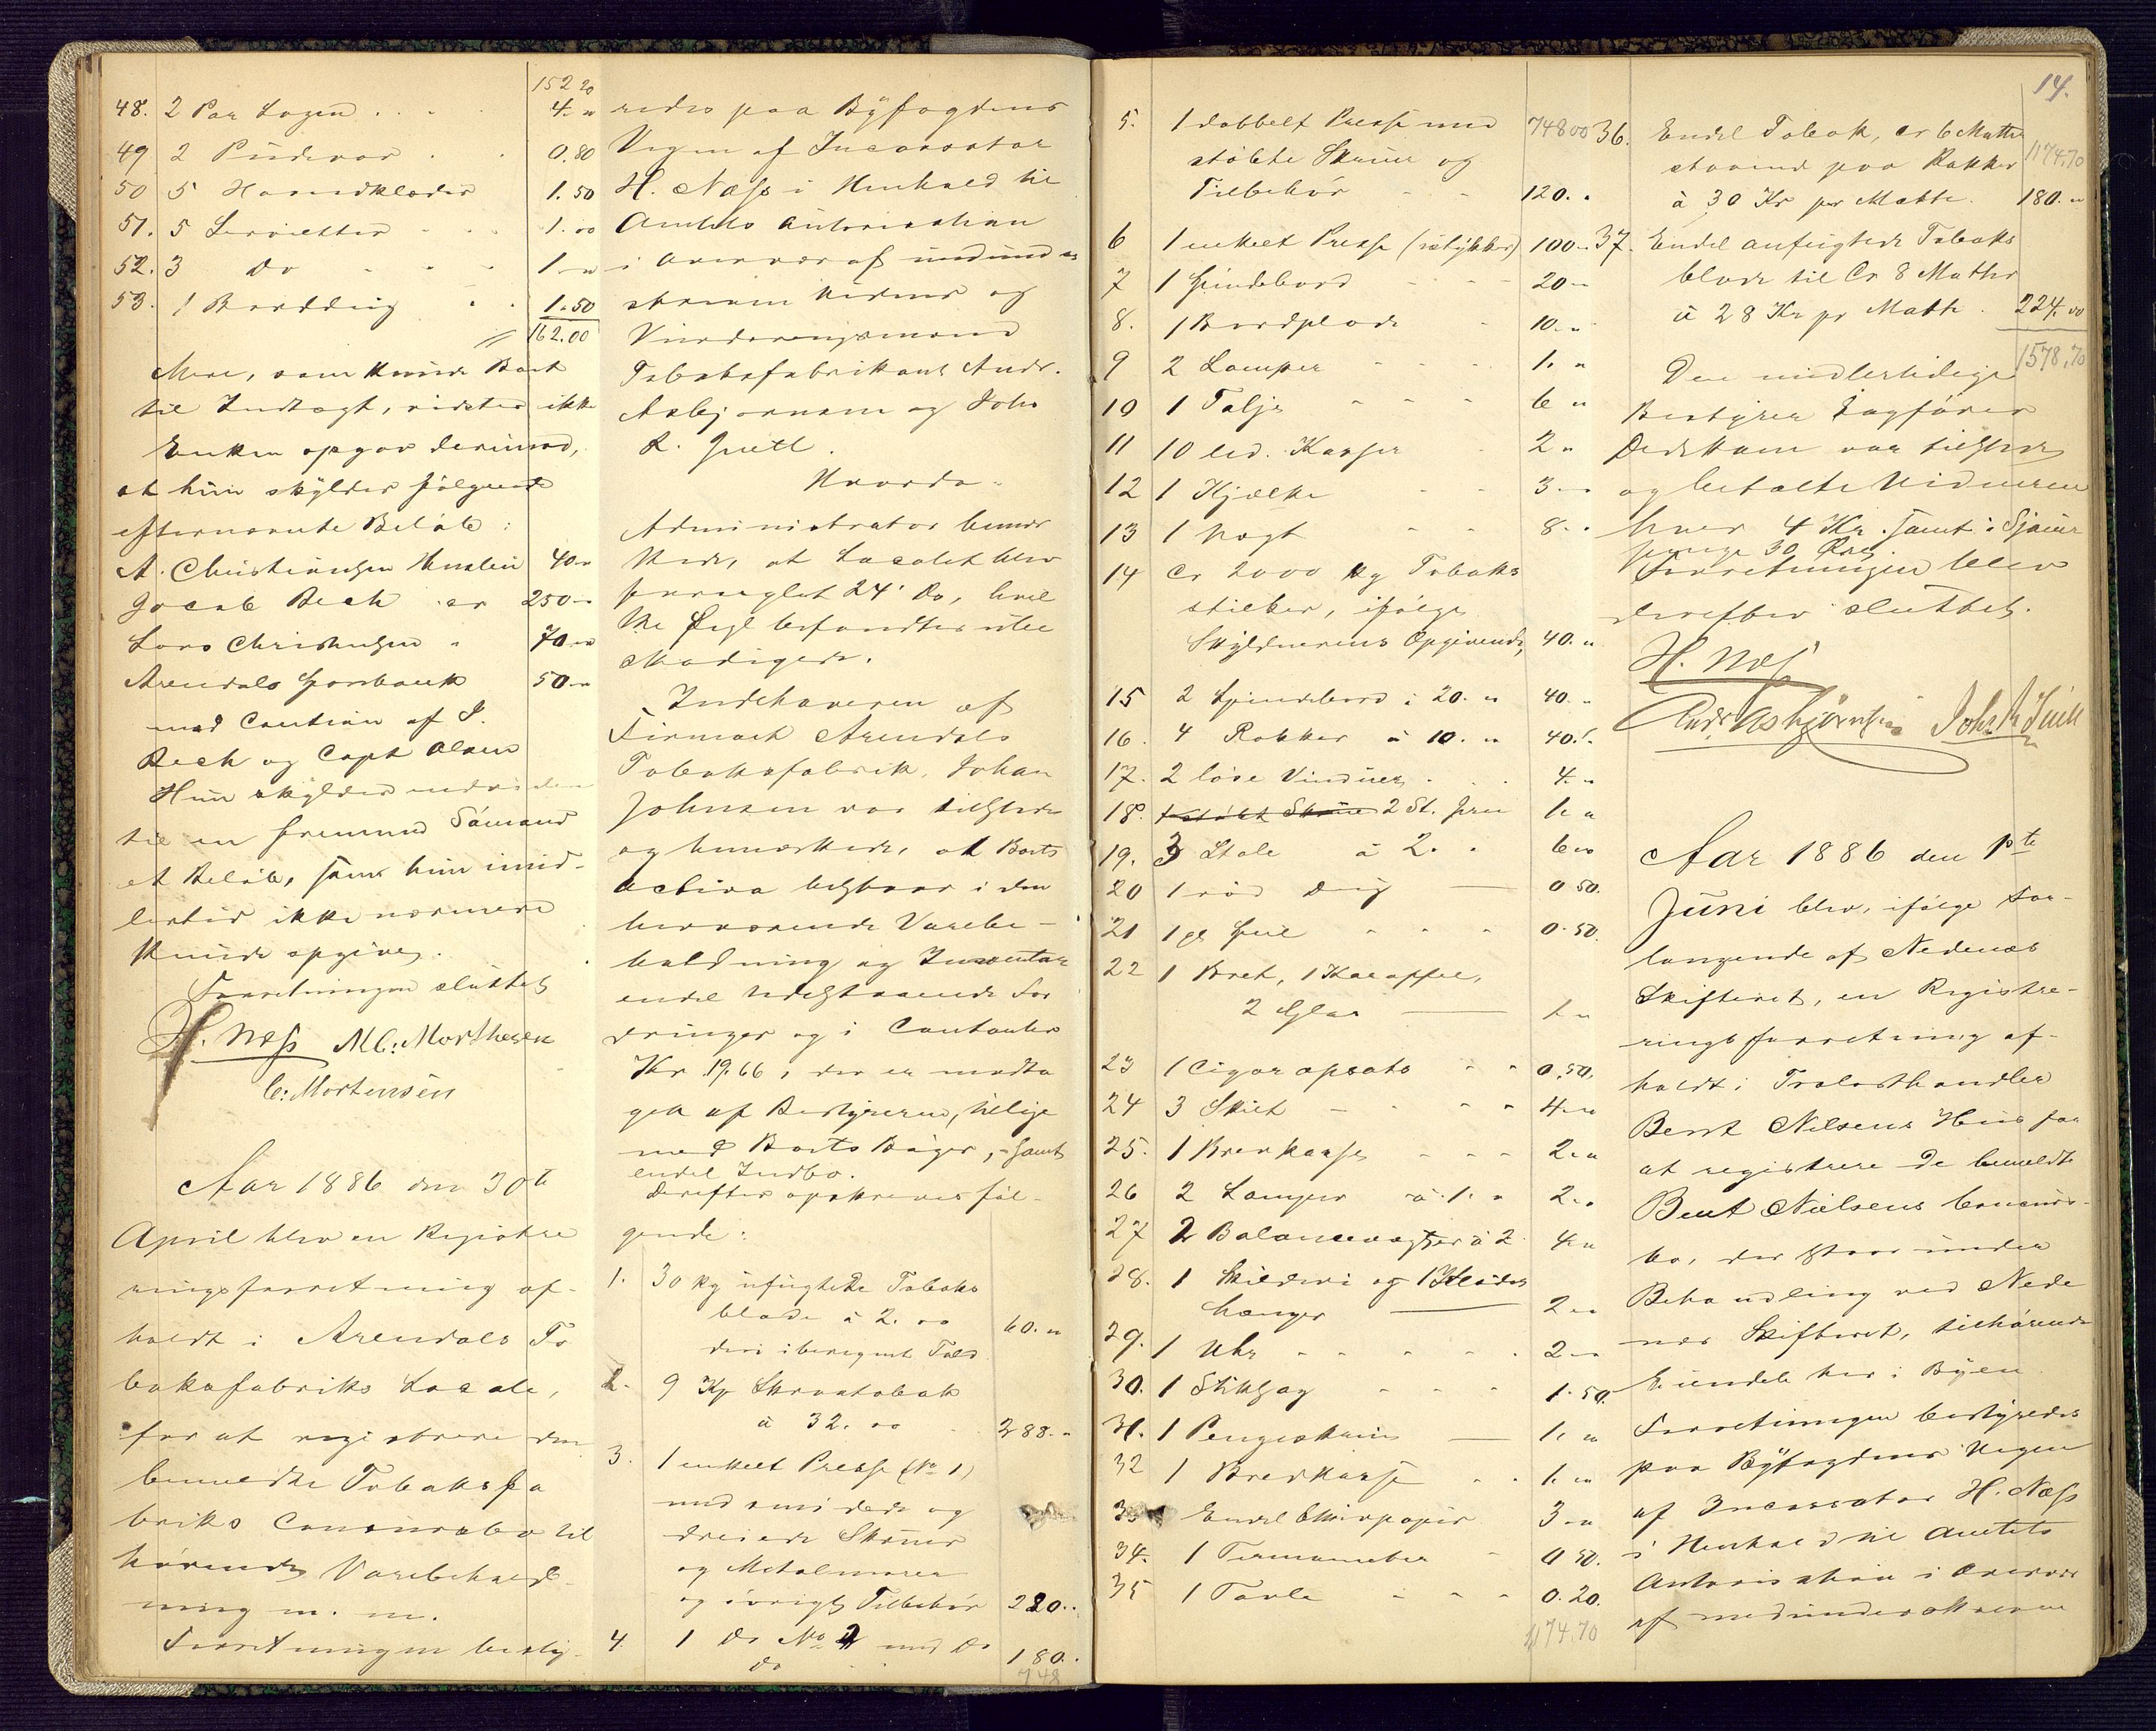 152 20
48. 2 Par Lagen . . . 4. "
49 2 Püdevar . . 0.80
50 5 Haandklæder 1.50
51. 5 Servietter . . . 1.00
52. 3 Do - - - 1 "
53. 1 Borddüg . . 1.50
162.00
Mere, som künde Boet
til Indtægt, vidstes ikke
Enken opgav derimod,
at hün skylder følgende
efternævnte Beløb:
A. Christiansen 40 "
Jacob Bech . cr 250 "
Lars Christensen " 70 "
Arendals Sparebank 50 "
med Caution af J.
Bech og Capt Olsen
Hün skylder endvidere
til en fremmed Sømand
et Beløb, som hün imid-
lertid ikke nærmere
künde opgive.
Forretningen slüttet
H. Næss M C: Morthesen
C: Mortensen
Aar 1886 den 30te
April blev en Registre
ringsforretning af-
holdt i Arendals To
baksfabriks Locale,
for at registrere den
bemeldte Tobaksfa
briks Concürsbo til
hørende Varebehold-
ning m. m.
Forretningen besty-
redes paa Bÿfogdens
Vegne af Incassator
H. Næss i Henhold til
Amtets Autorisation
i Overvær af medünd er
skrevne Vidner og
Vürderingsmænd
Tobaksfabrikant Andr.
Asbjørnsen og John
R. Juell.
Hvorda-
Administrator bemær
kede, at Localet blev
forseglet 24' Do, hvil
ke Segl befandtes übe
skadigede.
Indehaveren af
Firmaet Arendals
Tobaksfabrik, Johan
Johnsen var tilstede
og bemærkede, at Boets
Activa bestaar i den
herværende Varebe-
holdning og Inventar
endel üdestaaende For
dringer og i Contanter
Kr 19.66, der er modta
get af Bestyreren, tillige
med Boets Bøger, - samt
endel Indbo.
Derefter opskreves føl-
gende:
1. 30 kg üfügtede Tobaks
blade à 2. 00 60. "
deri iberegnet Told
2. 9 Kg Skraatobak
à 32. 00 288. "
3. 1 enkelt Presse (No 1)
med smidede og
dreiede Skrüer
og Metalmoren
og øvrigt Tilbehør 220..
4. 1 Do No 2 med Do
Do 180.
748
14.
5. 1 dobbelt Presse med 748 00
støbte Skrüer og
Tilbehør - - 120. "
6 1 enkelt Presse (istykker) 100 "
7 1 Spindebord - - - 20 "
8. 1 Bordplade - 10. "
9 2 Lamper - - - 1. "
10 1 Talje - - - 6 "
11 10 led. Kasser - 2 "
12 1 Kjælke - - 3 "
13 1 Vægt - - 8 "
14 Cr 2000 kg Tobaks
stilker, ifølge
Skyldnerens Opgivende, 40. "
15 2 Spindebord à 20. " 40. "
16. 4 Rokker à 10. " 40. "
17. 2 løse Vindüer . . . 4. "
18. 1 støbt Skrüe 2 St. Jern 1. "
19. 3 Stole à 2. " 6 "
20 1 rød Düg — 0 50.
21 1 gl Speil - - - 0.50.
22 1 Bret, 1 Karaffel,
2 Glas — 1 "
23 1 Cigaropsats - - 0,50.
24 3 Skilt - - - - 4. "
25. 1 Brevkasse - - - 2. "
26 2 Lamper à 1. " 2. "
27 2 Balancevægter à 2 4. "
28. 1 Skilderi og 1 Klædes
hænger — 2 "
29. 1 Uhr - - - - 2 "
30. 1 Stiksag - - - 1.50.
31. 1 Pengeskrin — 1. "
32 1 Brevkasse - . 1. "
33 Endel Skrivpapir 3 "
34. 1 Termometer - 0 50.
35 1 Tavle - - - 0.20.
1174,70
36. Endel Tobak, cr 6 Matter
1174,70
staaende paa Rokker
à 30 Kr pr Matte. 180. "
37. Endel anfügtede Tobaks
blade til Cr 8 Matter
à 28 Kr pr Matte. 224.00
1578,70
Den midlertidige
Bestÿrer Sagfører
Dedekam var tilstede
og betalte Vidnerne
hver 4 Kr. samt i Sjaüer
penge 30 Øre.
Forretningen blev
derefter slüttet.
H. Næss
Andr. Asbjørnsen John R Juell
Aar 1886 den 1ste
Jüni blev, ifølge For-
langende af Nedenæs
Skifteret, en Registre-
ringsforretning af-
holdt i Trælasthandler
Bent Nilsens Hüs for
at registrere de bemeldte
Bent Nielsens Concürs-
bo, der staar ünder
Behandling ved Nede
næs Skifteret, tilhørende
Eiendele her i Byen.
Forretningen bestyredes
paa Bÿfogdens Vegne
af Incassator H. Næss
i Henhold til Amtets
Autorisation i Overvær
af medünderskrevne